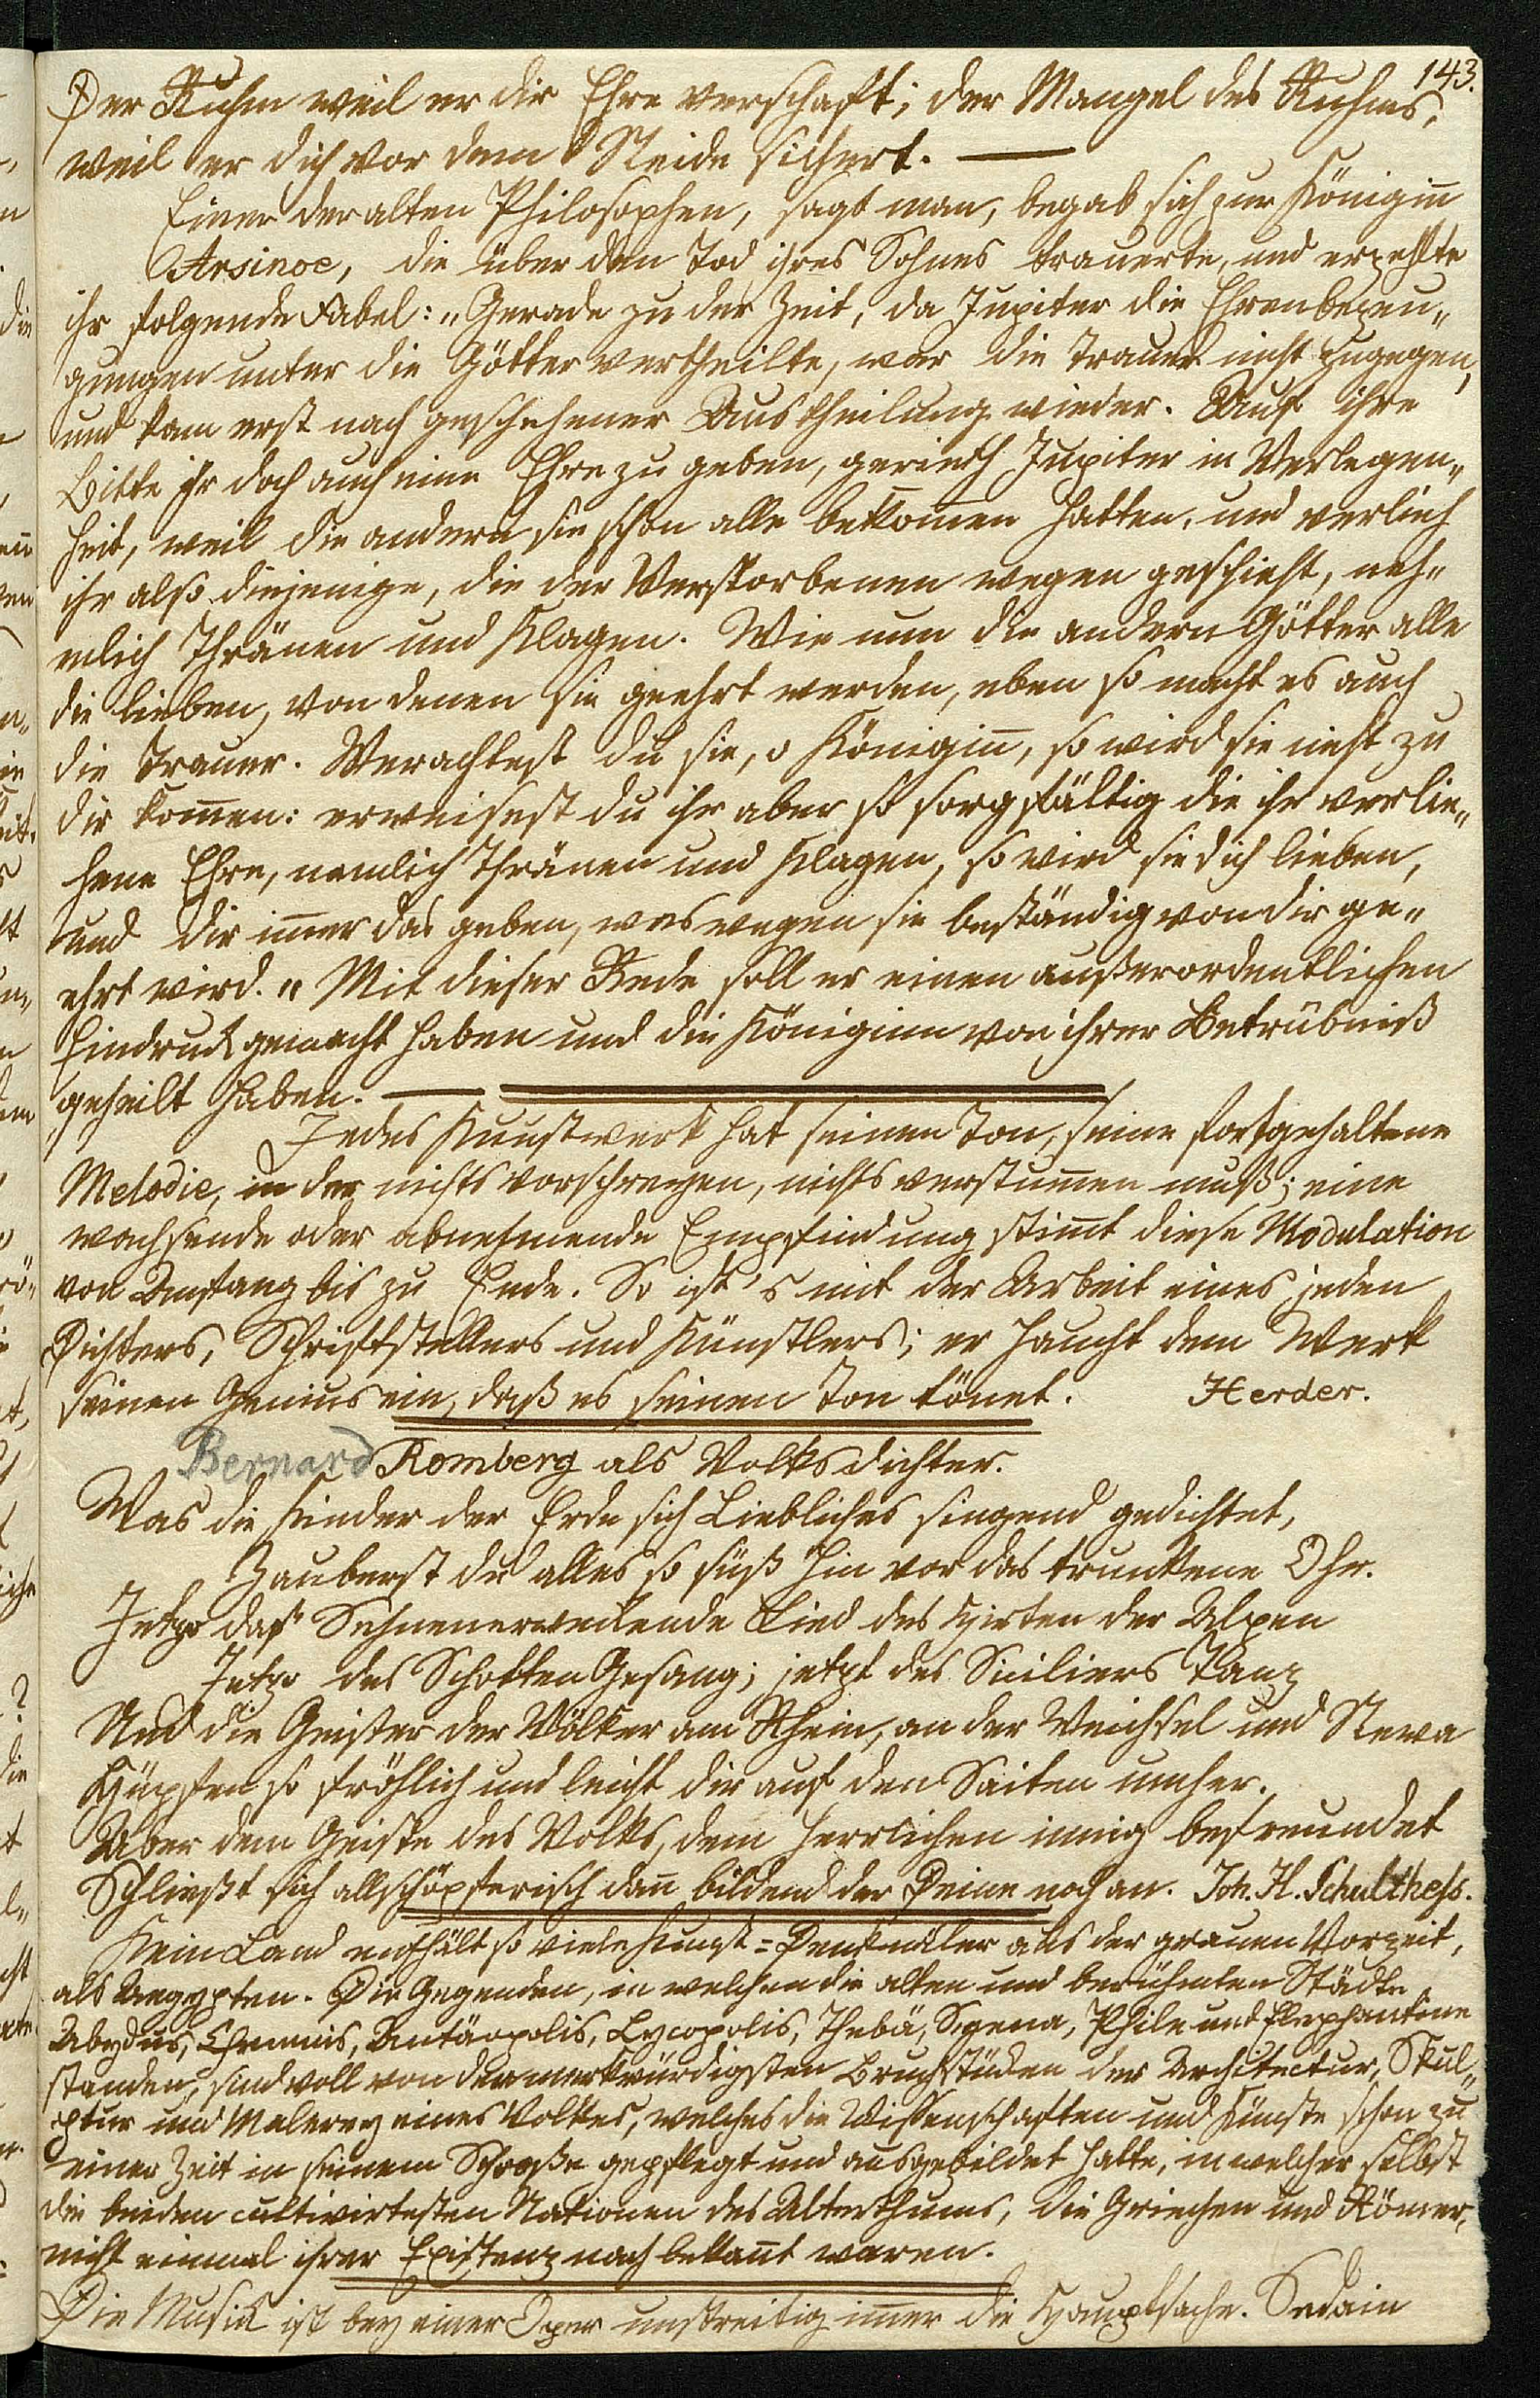 143.
Der Ruhm weil er dir Ehre verschaft; der Mangel des Ruhms,
weil er dich vor dem Neide sichert. —
Einer der alten Philosophen, sagt man, begab sich zur Königiñ
Arsinoe, die über den Tod ihres Sohnes trauerte, und erzehlte
ihr folgende Fabel: „Gerade zu der Zeit, da Jupiter die Ehrenbezeu„
gungen unter die Götter vertheilte, war die Trauer nicht zugegen,
und kam erst nach geschehener Austheilung wieder. Auf ihre
Bitte ihr doch auch eine Ehre zu geben, gerieth Jupiter in Verlegen„
heit, weil die andern sie schon alle bekom̄en hatten, und verlieh
ihr also diejenige, die der Verstorbenen wegen geschieht, neh„
mlich Thränen und Klagen. Wie nun die andern Götter alle
die lieben, von denen sie geehrt werden, eben so macht es auch
die Trauer. Verachtest du sie, o Königiñ, so wird sie nicht zu
dir kom̄en: erweisest du ihr aber so sorgfältig die ihr verlie„
hene Ehre, nemlich Thränen und Klagen, so wird sie dich lieben,
und dir im̄er das geben, weswegen sie beständig von dir ge„
ehrt wird." Mit dieser Rede soll er einen außerordentlichen
Eindruck gemacht haben und die Königinn von ihrer Betrübniß
geheilt haben. —
Jedes Kunstwerk hat seinen Ton, seine fortgehaltene
Melodie, in der nichts vorschreyen, nichts verstum̄en muß; eine
wachsende oder abnehmende Empfindung stim̄t diese Modulation
von Anfang bis zu Ende. So ist's mit der Arbeit eines jeden
Dichters, Schriftstellers und Künstlers; er haucht dem Werk
seinen Genius ein, daß es seinen Ton tönet. Herder.
Bernard Romberg als Volksdichter.
Was die Kinder der Erde sich Liebliches singend gedichtet,
Zauberst du alles so süß hin vor das trunkene Ohr.
Jetzo das Sehnenerweckende Lied des Hirten der Alpen
Jetzo des Schotten Gesang; jetzt des Siciliers Tanz
Und die Geister der Völker am Rhein, an der Weichsel und Newa
Hüpfen so fröhlich und leicht dir auf den Saiten umher.
Aber dem Geiste des Volks, dem herrlichen innig befreundet
Schließt sich allschöpferisch dañ bildend der Deine noch an. Joh. H. Schulthess.
Kein Land enthält so viele Kunst=Denkmäler aus der grauen Vorzeit,
als Aegypten. Die Gegenden, in welchen die alten und berühmten Städte
Abydus, Chemmis, Antäopolis, Lycopolis, Thebä, Syena, Phile und Elephantine
standen, sind voll von den merkwürdigsten Bruchstücken der Architectur, Skul„
ptur und Malerey eines Volkes, welches die Wissenschaften und Künste schon zu
einer Zeit in seinem Schooße gepflegt und ausgebildet hatte, in welcher selbst
die beiden cultivirtesten Nationen des Alterthums, die Griechen und Römer,
nicht einmal ihrer Existenz nach bekañt waren.
Die Musick ist bey einer Oper unstreitig im̄er die Hauptsache. Sedain